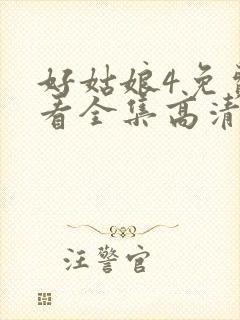 好姑娘4免费
看全集高清
汪警官